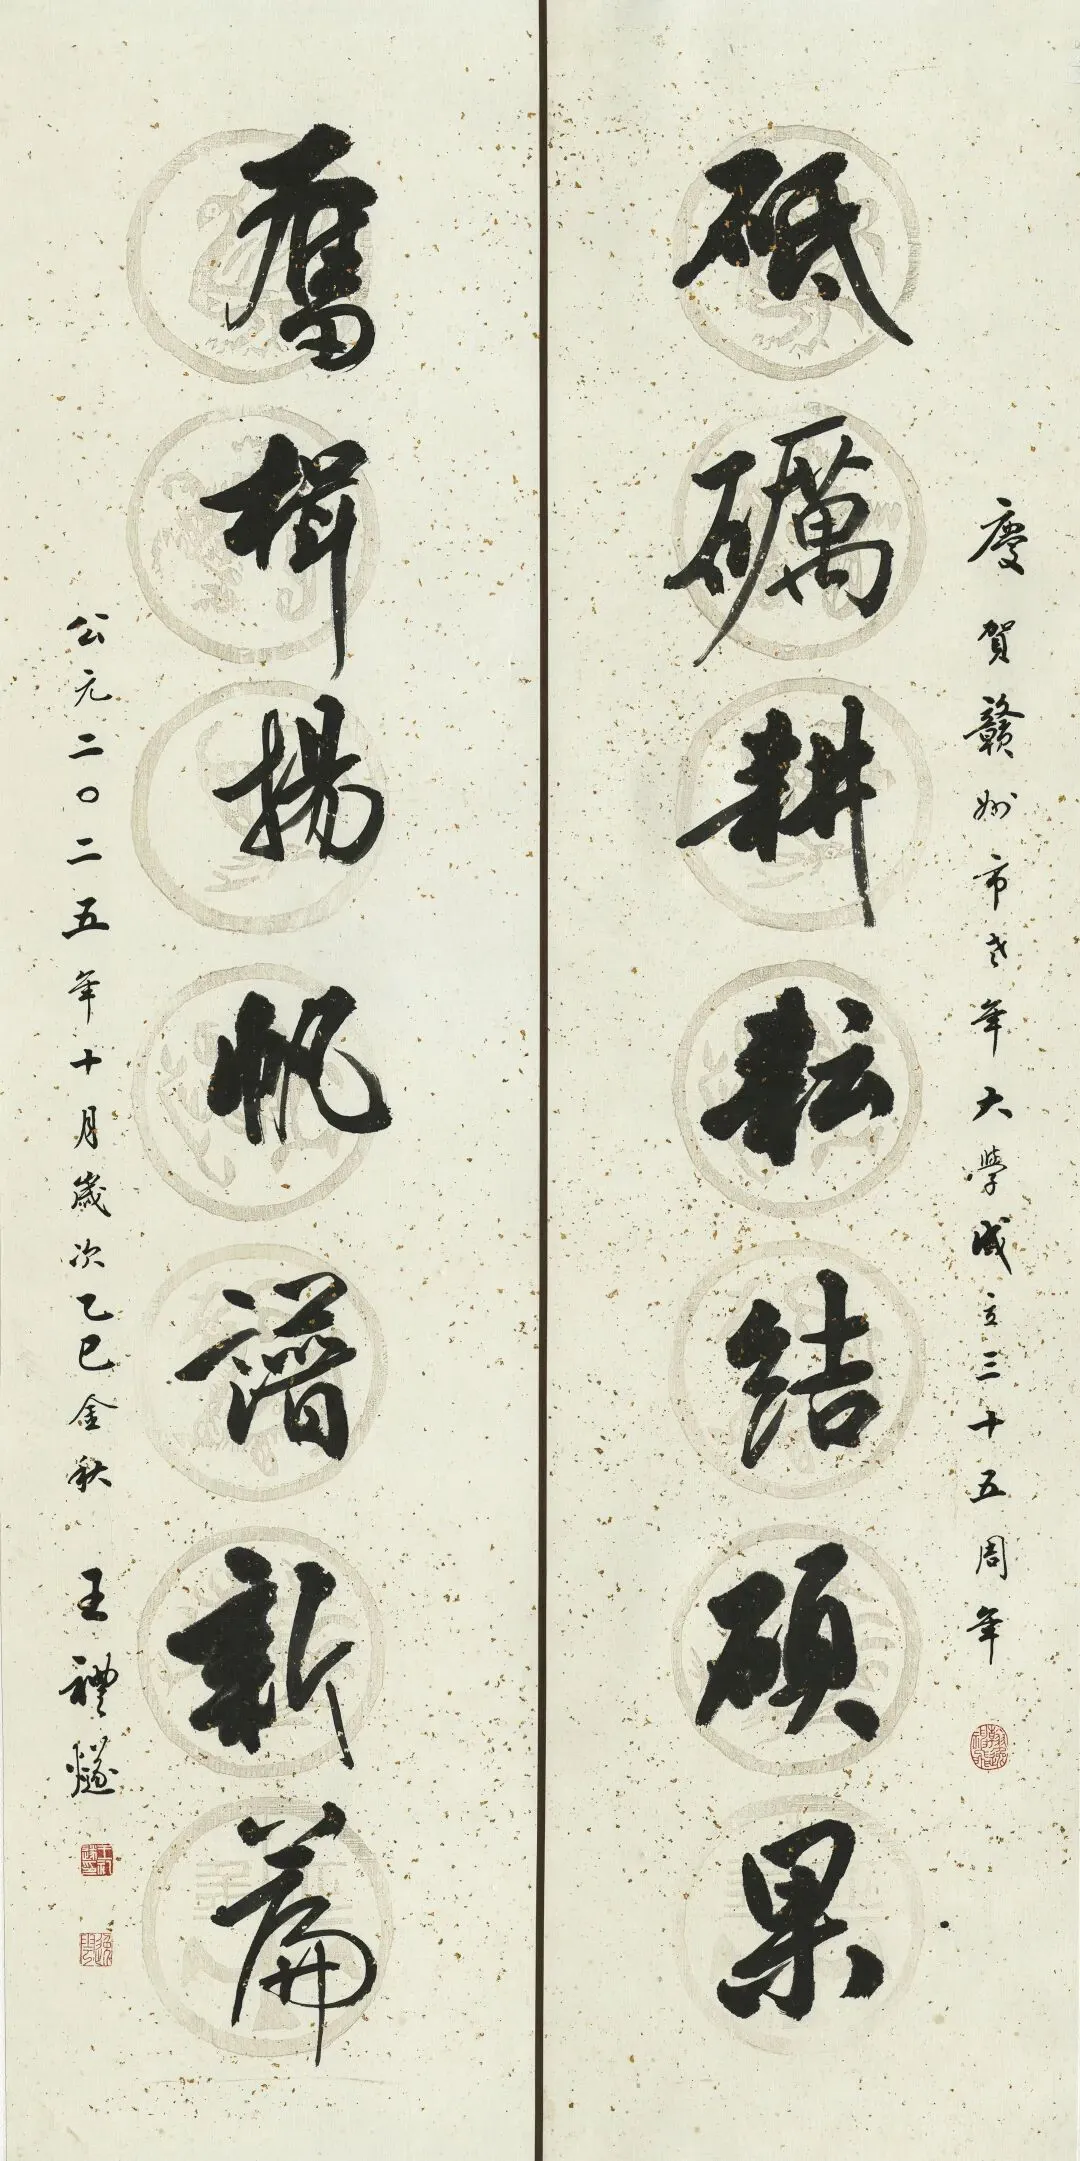 慶賀贛州市老年大學成立三十五周年
砥礪耕耘結碩果
奮楫揚帆譜新篇
公元二〇二五年十月歲次乙巳金秋 王禮